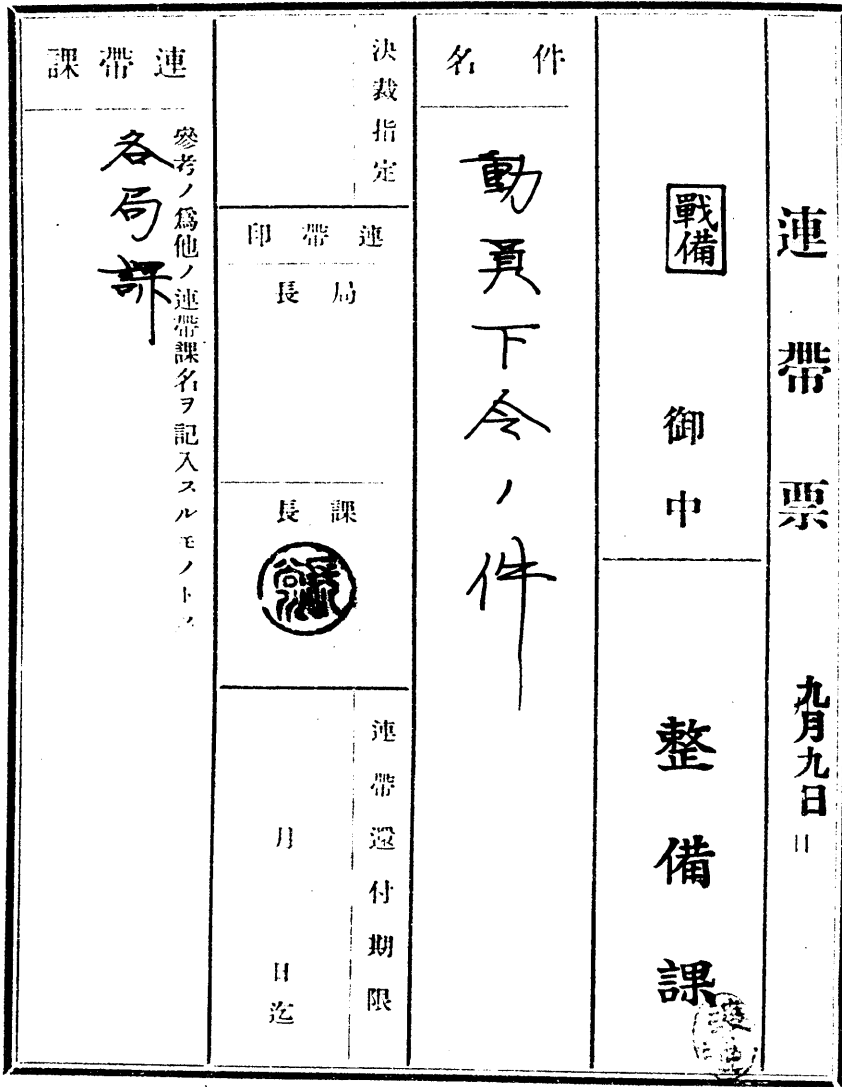 連帶票
九月九日
月
日
戰備
御中
整備課
件名
動員下令ノ件
決裁指定
連帶印
局長
課長
連帶還付期限
月 日迄
連帶課
參考ノ爲他ノ連帶課名ヲ記入スルモノトス
各局課